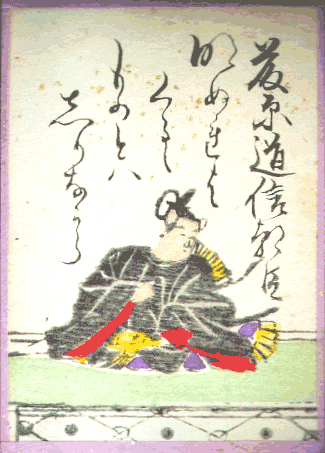 藤原道信朝臣
明ぬれは
くるゝ
ものとハ
しりなから